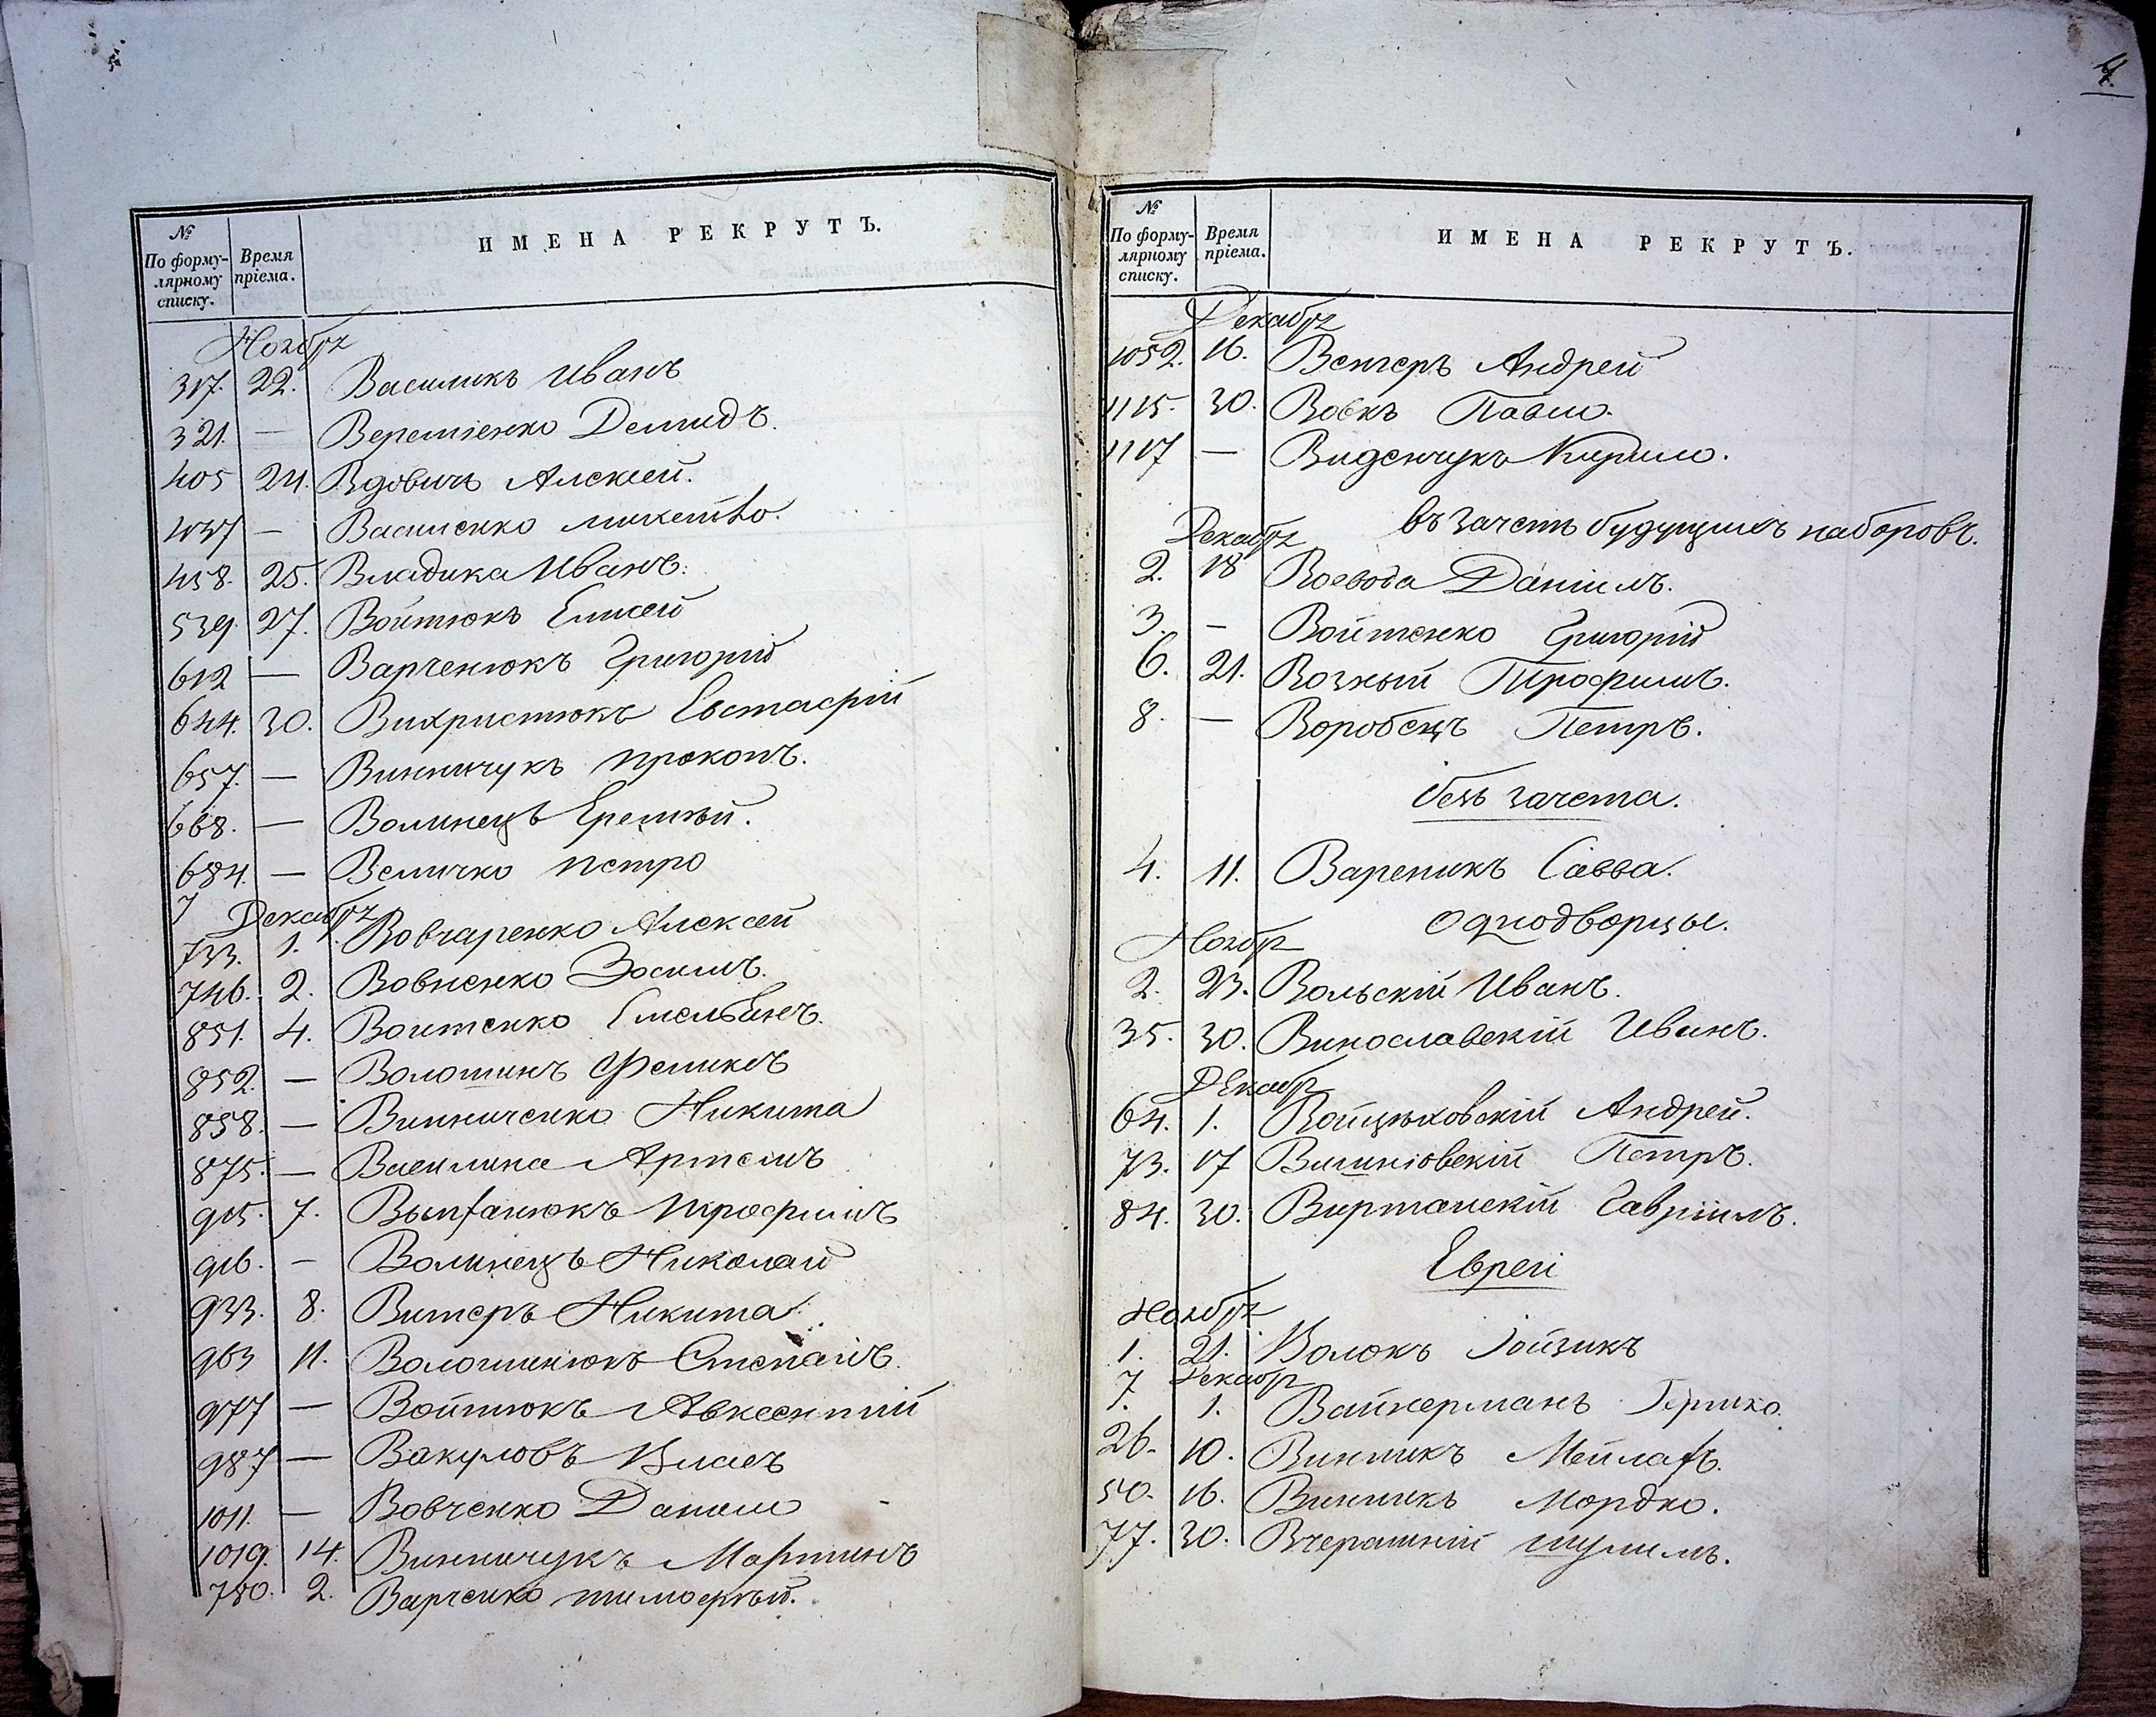 №
По форму-
лярному
списку.
Время
пріема.
ИМЕНА РЕКРУТЪ.
Ноябрь
317. 22. Василикъ Иванъ
321. — Веремієнко Демидъ.
405 24. Вдовичъ Алексей.
437 — Василенко
458. 25. Владика Иванъ.
539. 27. Войтюкъ Елисей
612 — Варченюкъ Григорій
644. 30. Вихристюкъ Евстафій
657. — Винничукъ Прокопъ.
668. — Волинецъ Еремѣй.
684. — Величко Петро
7 Декабрь
733. 1. Вовчаренко Алексей
746. 2. Вовненко Зосимъ.
851. 4. Воитенко Емельянъ.
852. — Волошинъ Феликсъ
858. — Винниченко Никита
875. — Василина Артемъ
915. 7. Трофимъ
916. — Волинецъ Николай
933. 8. Витеръ Никита
963 11. Волошинюкъ Степанъ.
977 — Войтюкъ Авксентій
987 — Вакуловъ Власъ
1011. — Вовченко Данило
1019. 14. Винничукъ Мартинъ
780. 2. Варченко Тимофѣй.
4.
№
По форму-
лярному
списку.
Время
пріема.
ИМЕНА РЕКРУТЪ.
Декабрь
1052. 16. Венгеръ Андрей
1115. 30. Вовкъ Павло.
1117 — Виденчукъ Кирило.
въ зачетъ будущихъ наборовъ.
Декабрь
2. 18 Воевода Даніилъ.
3. — Войтенко Григорій
6. 21. Возный Трофимъ.
8. — Воробецъ Петръ.
безъ зачета.
4. 11. Вареникъ Савва.
Однодворцы.
Ноябр
2. 23. Вольскій Иванъ.
35. 30. Винославскій Иванъ.
Декабр
64. 1. Войцѣховскій Андрей.
73. 17 Вишніовскій Петръ.
84. 30. Виртанскій Гавріилъ.
Евреи
Ноябрь
1. 21. Волокъ Іойзикъ
7. Декабр
1. Вайнерманъ Гершко.
26. 10. Винникъ Мейлахъ.
50. 16. Винникъ Мордко.
77. 30. Вчерашній Шулимъ.